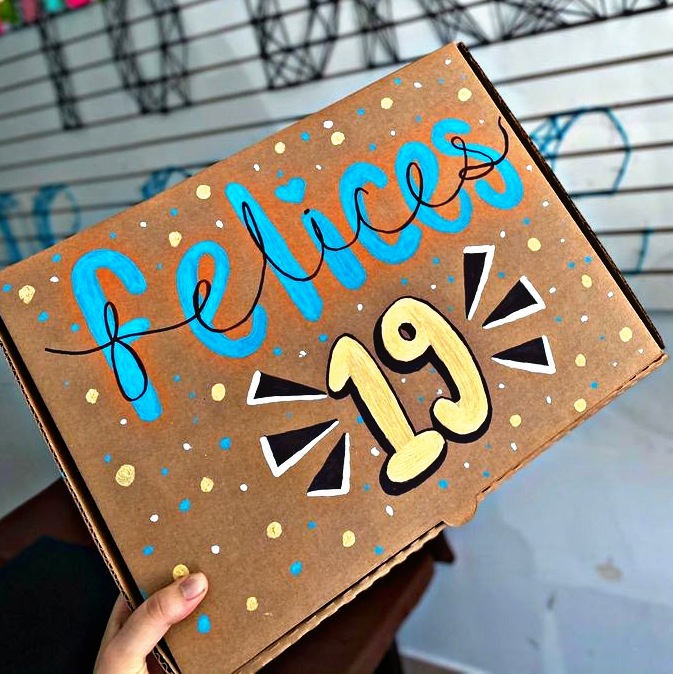 felices
19